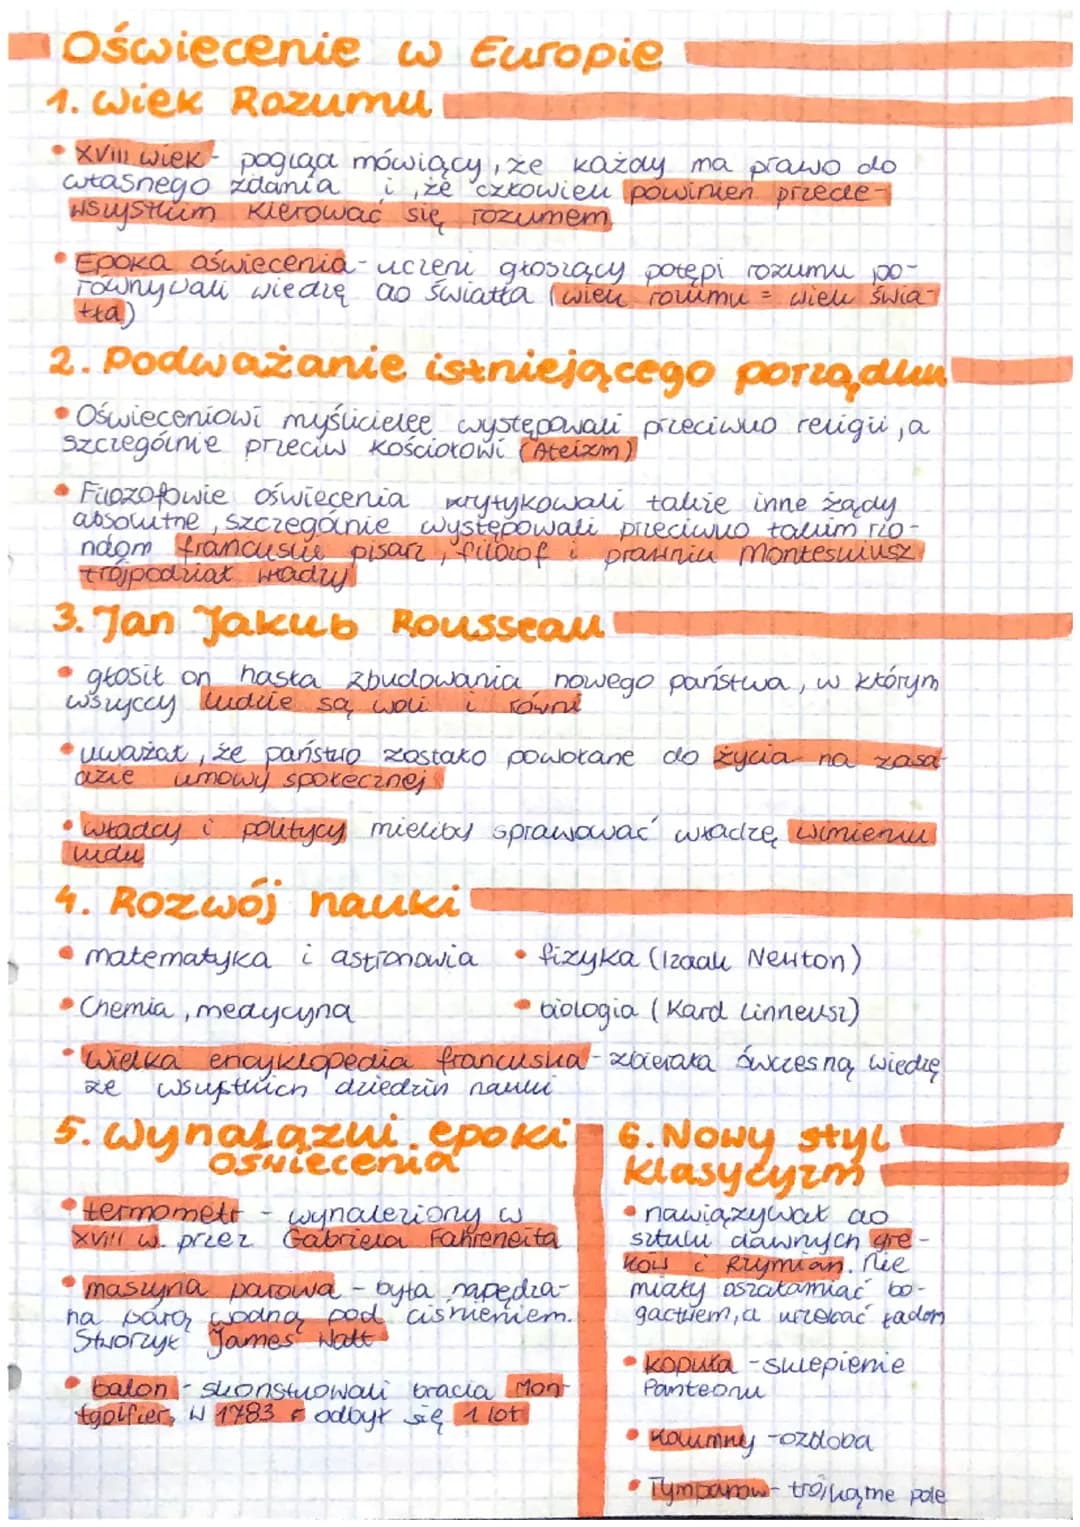 Oświecenie w Europie
1. Wiek Rozumu
• XVIII wiek - pogląd mówiący, że każdy ma prawo do
własnego zdania i, że człowiek powinien przede-
wszystkim kierować się rozumem
• Epoka oświecenia - uczeni głoszący potępi rozumu po-
równywali wiedzę do światła (wiek rozumu = wiek świa-
tła)
2. Podważanie istniejącego porządku
• Oświeceniowi myśliciele występowali przeciwko religii, a
szczególnie przeciw kościołowi (Ateizm)
• Filozofowie oświecenia krytykowali także inne żądy
absolutne, szczególnie występowali przeciwko takim rzą-
ndom francuski pisarz, filozof i prawnik Monteskiusz
trójpodział władzy
3. Jan Jakub Rousseau
• głosił on hasła zbudowania nowego państwa, w którym
wszyscy ludzie są woli i równi
• uważał, że państwo zostało powołane do życia na zasa-
dzie umowy społecznej
• władcy i politycy mieliby sprawować władzę wimieniu
ludu
4. Rozwój nauki
• matematyka i astronowia • fizyka (Izaak Newton)
• Chemia, medycyna • biologia (Kard Linneusz)
• Wielka encyklopedia francuska - zbierała ówczesną wiedzę
ze wszystkich dziedzin nauki
5. Wynalazki epoki
oświecenia
• termometr - wynaleziony w
XVIII w. przez Gabriela Fahreneita
• maszyna parowa - była napędza-
na parą wodną pod ciśnieniem.
Stworzył James Watt
• balon - skonstruowali bracia Mon-
tgolfier, W 1783 r odbył się 1 lot
6. Nowy styl
klasycyzm
• nawiązywał do
sztuki dawnych gre-
ków i Rzymian. Nie
miały oszałamiać bo-
gactwem, a urzekać ładem
• kopuła - sklepienie
Panteonu
• kolumny - ozdoba
• Tympanow - trójkątne pole